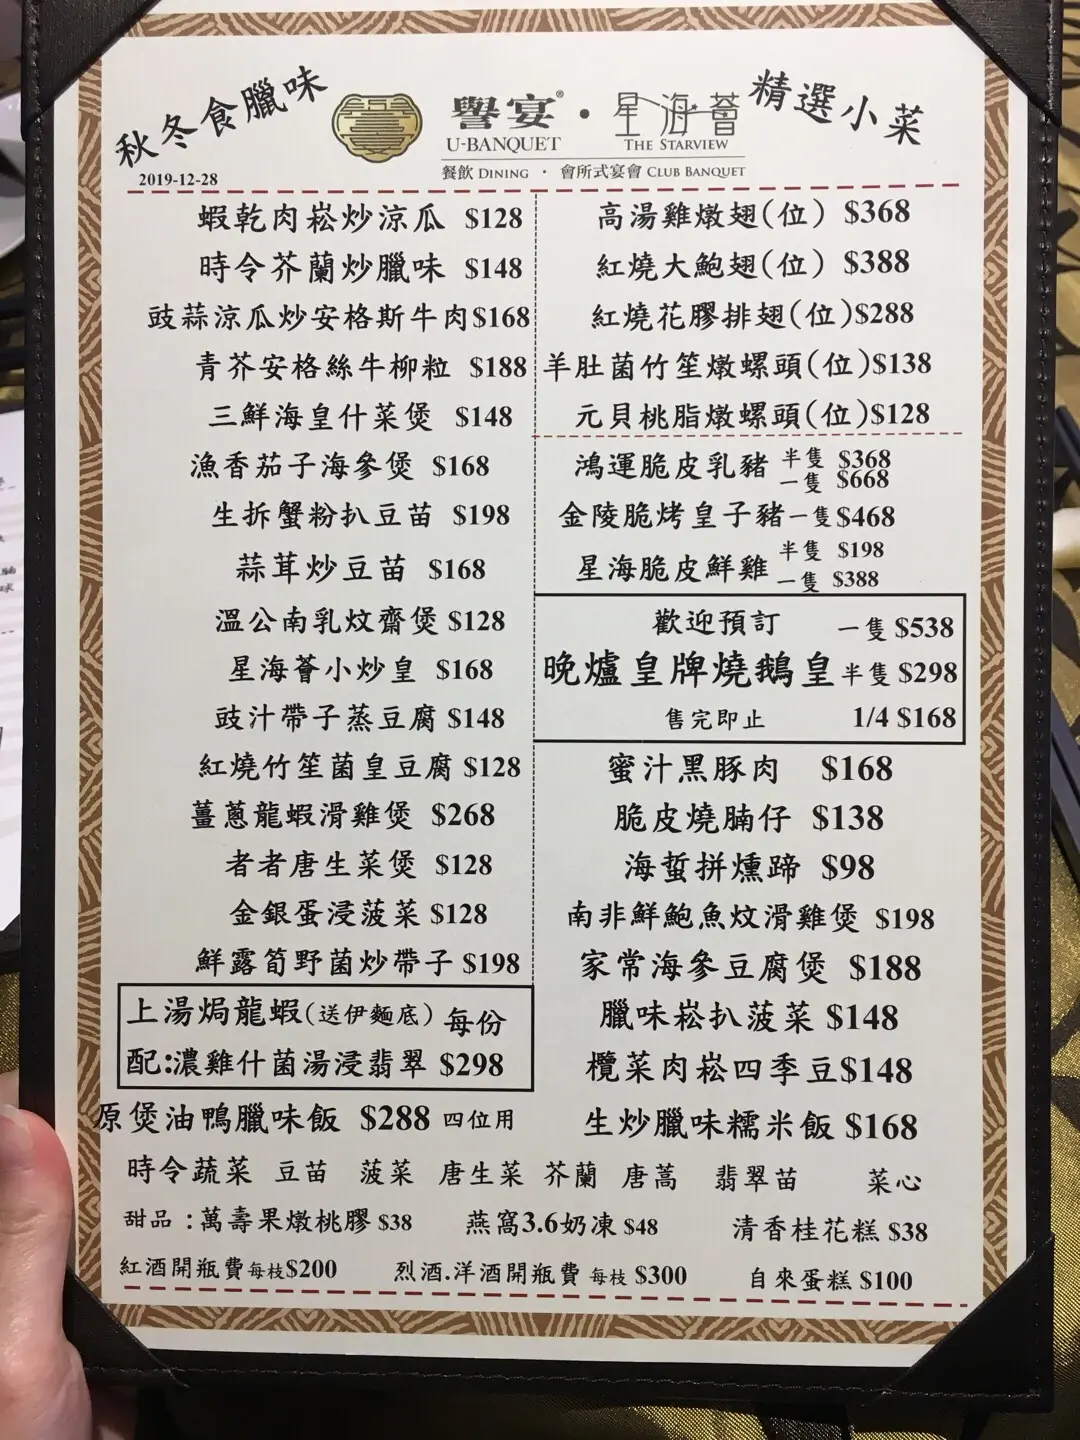 秋冬食臘味
譽宴® · 星海薈
U-BANQUET THE STARVIEW
餐飲 DINING · 會所式宴會 CLUB BANQUET
精選小菜
2019-12-28
蝦乾肉崧炒涼瓜 $128
時令芥蘭炒臘味 $148
豉蒜涼瓜炒安格斯牛肉$168
青芥安格絲牛柳粒 $188
三鮮海皇什菜煲 $148
漁香茄子海參煲 $168
生拆蟹粉扒豆苗 $198
蒜茸炒豆苗 $168
溫公南乳炆齋煲 $128
星海薈小炒皇 $168
豉汁帶子蒸豆腐 $148
紅燒竹笙菌皇豆腐 $128
薑蔥龍蝦滑雞煲 $268
者者唐生菜煲 $128
金銀蛋浸菠菜 $128
鮮露筍野菌炒帶子 $198
上湯焗龍蝦(送伊麵底) 每份
配:濃雞什菌湯浸翡翠 $298
原煲油鴨臘味飯 $288 四位用
高湯雞燉翅(位) $368
紅燒大鮑翅(位) $388
紅燒花膠排翅(位)$288
羊肚菌竹笙燉螺頭(位)$138
元貝桃脂燉螺頭(位)$128
鴻運脆皮乳豬 半隻 $368
一隻 $668
金陵脆烤皇子豬一隻$468
星海脆皮鮮雞 半隻 $198
一隻 $388
歡迎預訂 一隻 $538
晚爐皇牌燒鵝皇 半隻 $298
售完即止 1/4 $168
蜜汁黑豚肉 $168
脆皮燒腩仔 $138
海蜇拼燻蹄 $98
南非鮮鮑魚炆滑雞煲 $198
家常海參豆腐煲 $188
臘味崧扒菠菜 $148
欖菜肉崧四季豆$148
生炒臘味糯米飯 $168
時令蔬菜 豆苗 菠菜 唐生菜 芥蘭 唐蒿 翡翠苗 菜心
甜品 :萬壽果燉桃膠 $38 燕窩3.6奶凍 $48 清香桂花糕 $38
紅酒開瓶費每枝$200 烈酒.洋酒開瓶費 每枝 $300 自來蛋糕 $100